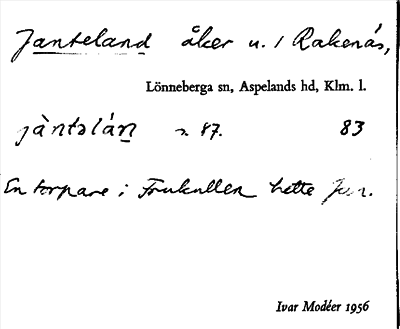 Janteland åker u. / Rakenäs,
Lönneberga sn, Aspelands hd, Klm. l.
jàntəlán s. 87. 83
En torpare i Frukullen hette Jan.
Ivar Modéer 1956